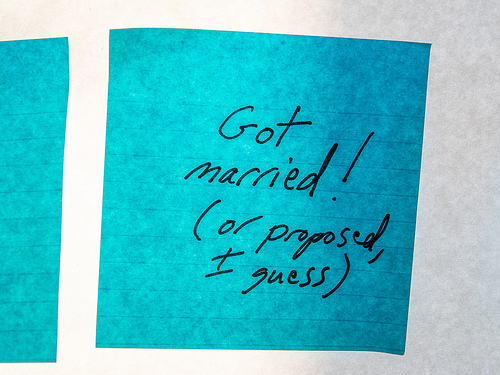 Got
married!
(or proposed,
I guess)